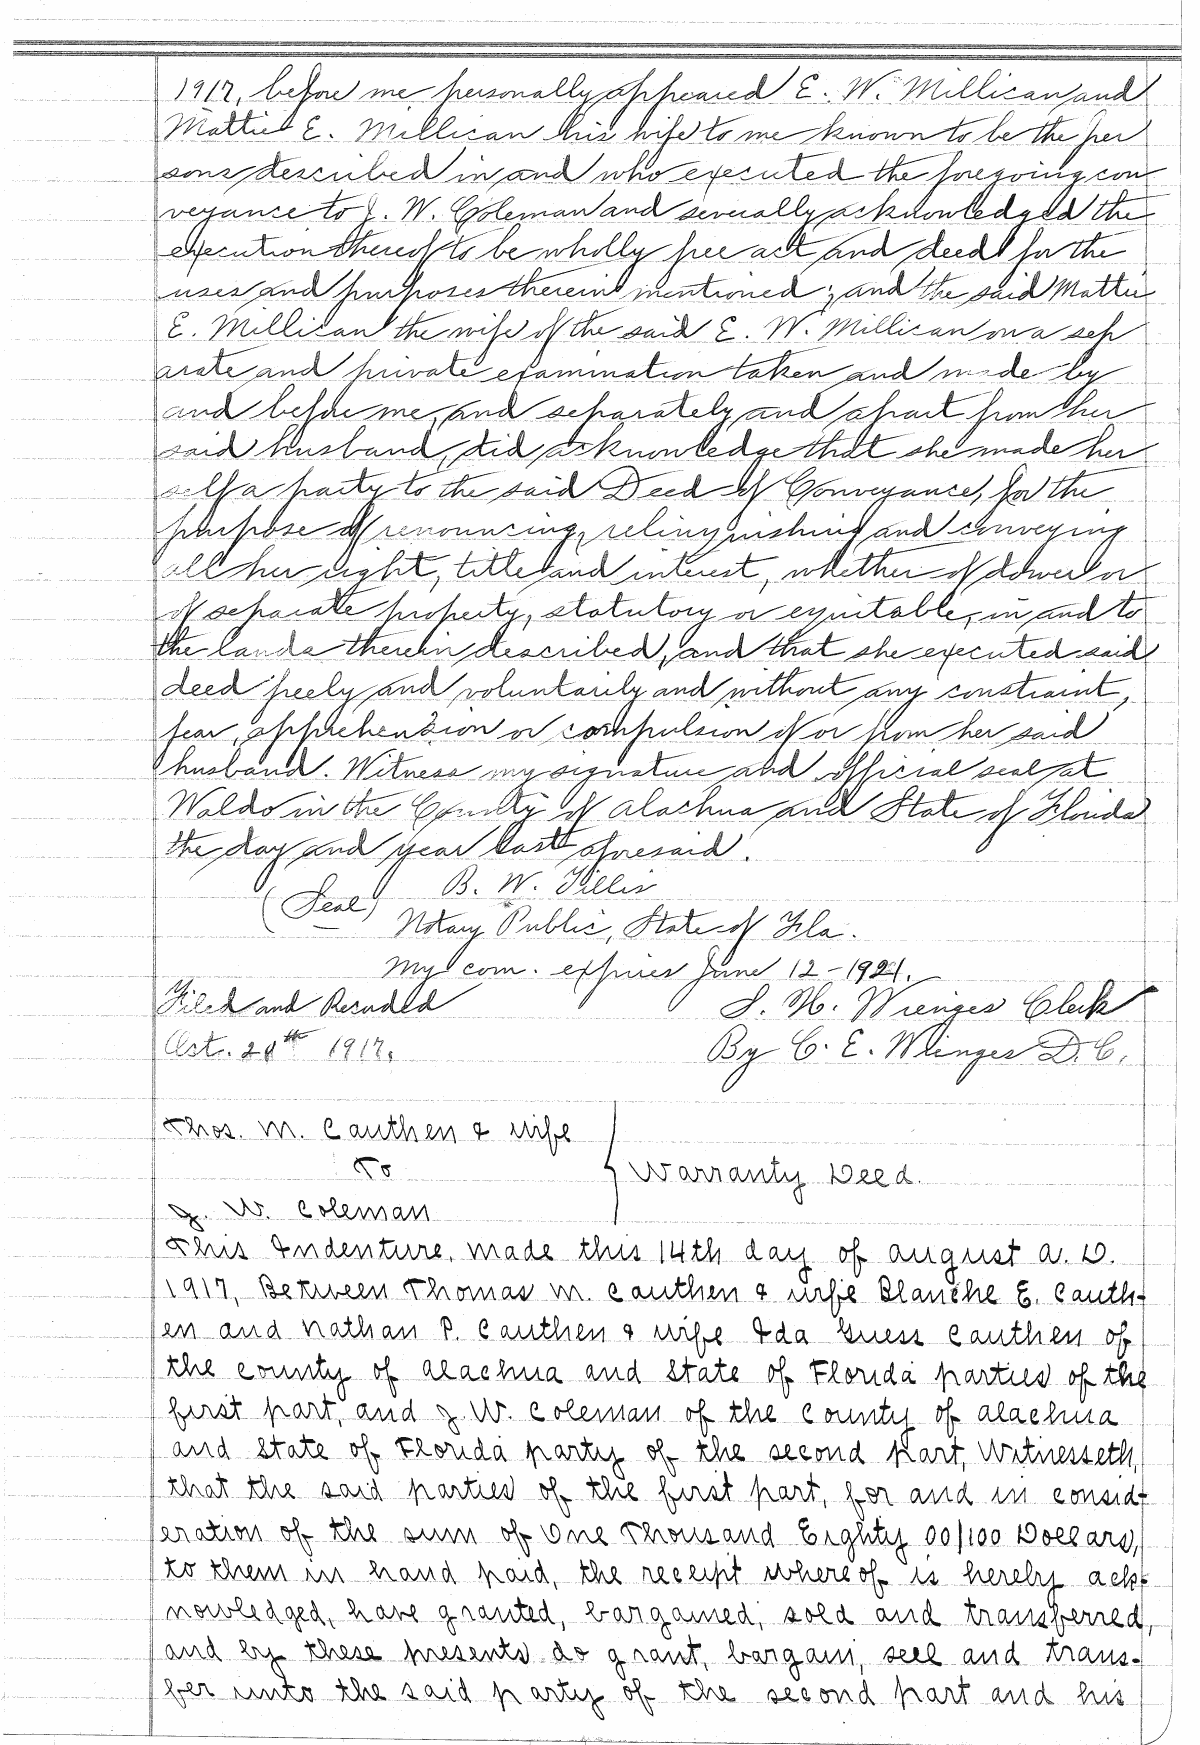 1917, before me personally appeared E. W. Millican and
Mattie E. Millican his wife to me known to be the per
sons described in and who executed the foregoing con
veyance to J. W. Coleman and severally acknowledged the
execution thereof to be wholly free act and deed for the
uses and purposes therein mentioned; and the said Mattie
E. Millican the wife of the said E. W. Millican on a sep
arate and private examination taken and made by
and before me, and separately and apart from her
said husband, did acknowledge that she made her
self a party to the said Deed of Conveyance, for the
purpose of renouncing, relinquishing and conveying
all her right, title and interest, whether of dower or
of separate property, statutory or equitable, in and to
the lands therein described, and that she executed said
deed freely and voluntarily and without any constraint,
fear, apprehension or compulsion of or from her said
husband. Witness my signature and official seal at
Waldo in the County of Alachua and State of Florida
the day and year last aforesaid.
B. W. Tillis
(Seal)
Notary Public, State of Fla.
My com. expires June 12 - 1921.
Filed and Recorded S. H. Wienges Clerk
Oct. 20th 1917. By C. E. Wienges D.C.
Thos. M. Cauthen & wife
To
Warranty Deed.
J. W. Coleman
This Indenture, made this 14th day of August A. D.
1917, Between Thomas M. Cauthen & wife Blanche E. Cauth-
en and Nathan P. Cauthen & wife Ida Guess Cauthen of
the County of Alachua and State of Florida parties of the
first part, and J. W. Coleman of the County of Alachua
and State of Florida party of the second part, Witnesseth,
that the said parties of the first part, for and in consid-
eration of the sum of One Thousand Eighty 00/100 Dollars,
to them in hand paid, the receipt whereof is hereby ack-
nowledged, have granted, bargained, sold and transferred,
and by these presents do grant, bargain, sell and trans-
fer unto the said party of the second part and his